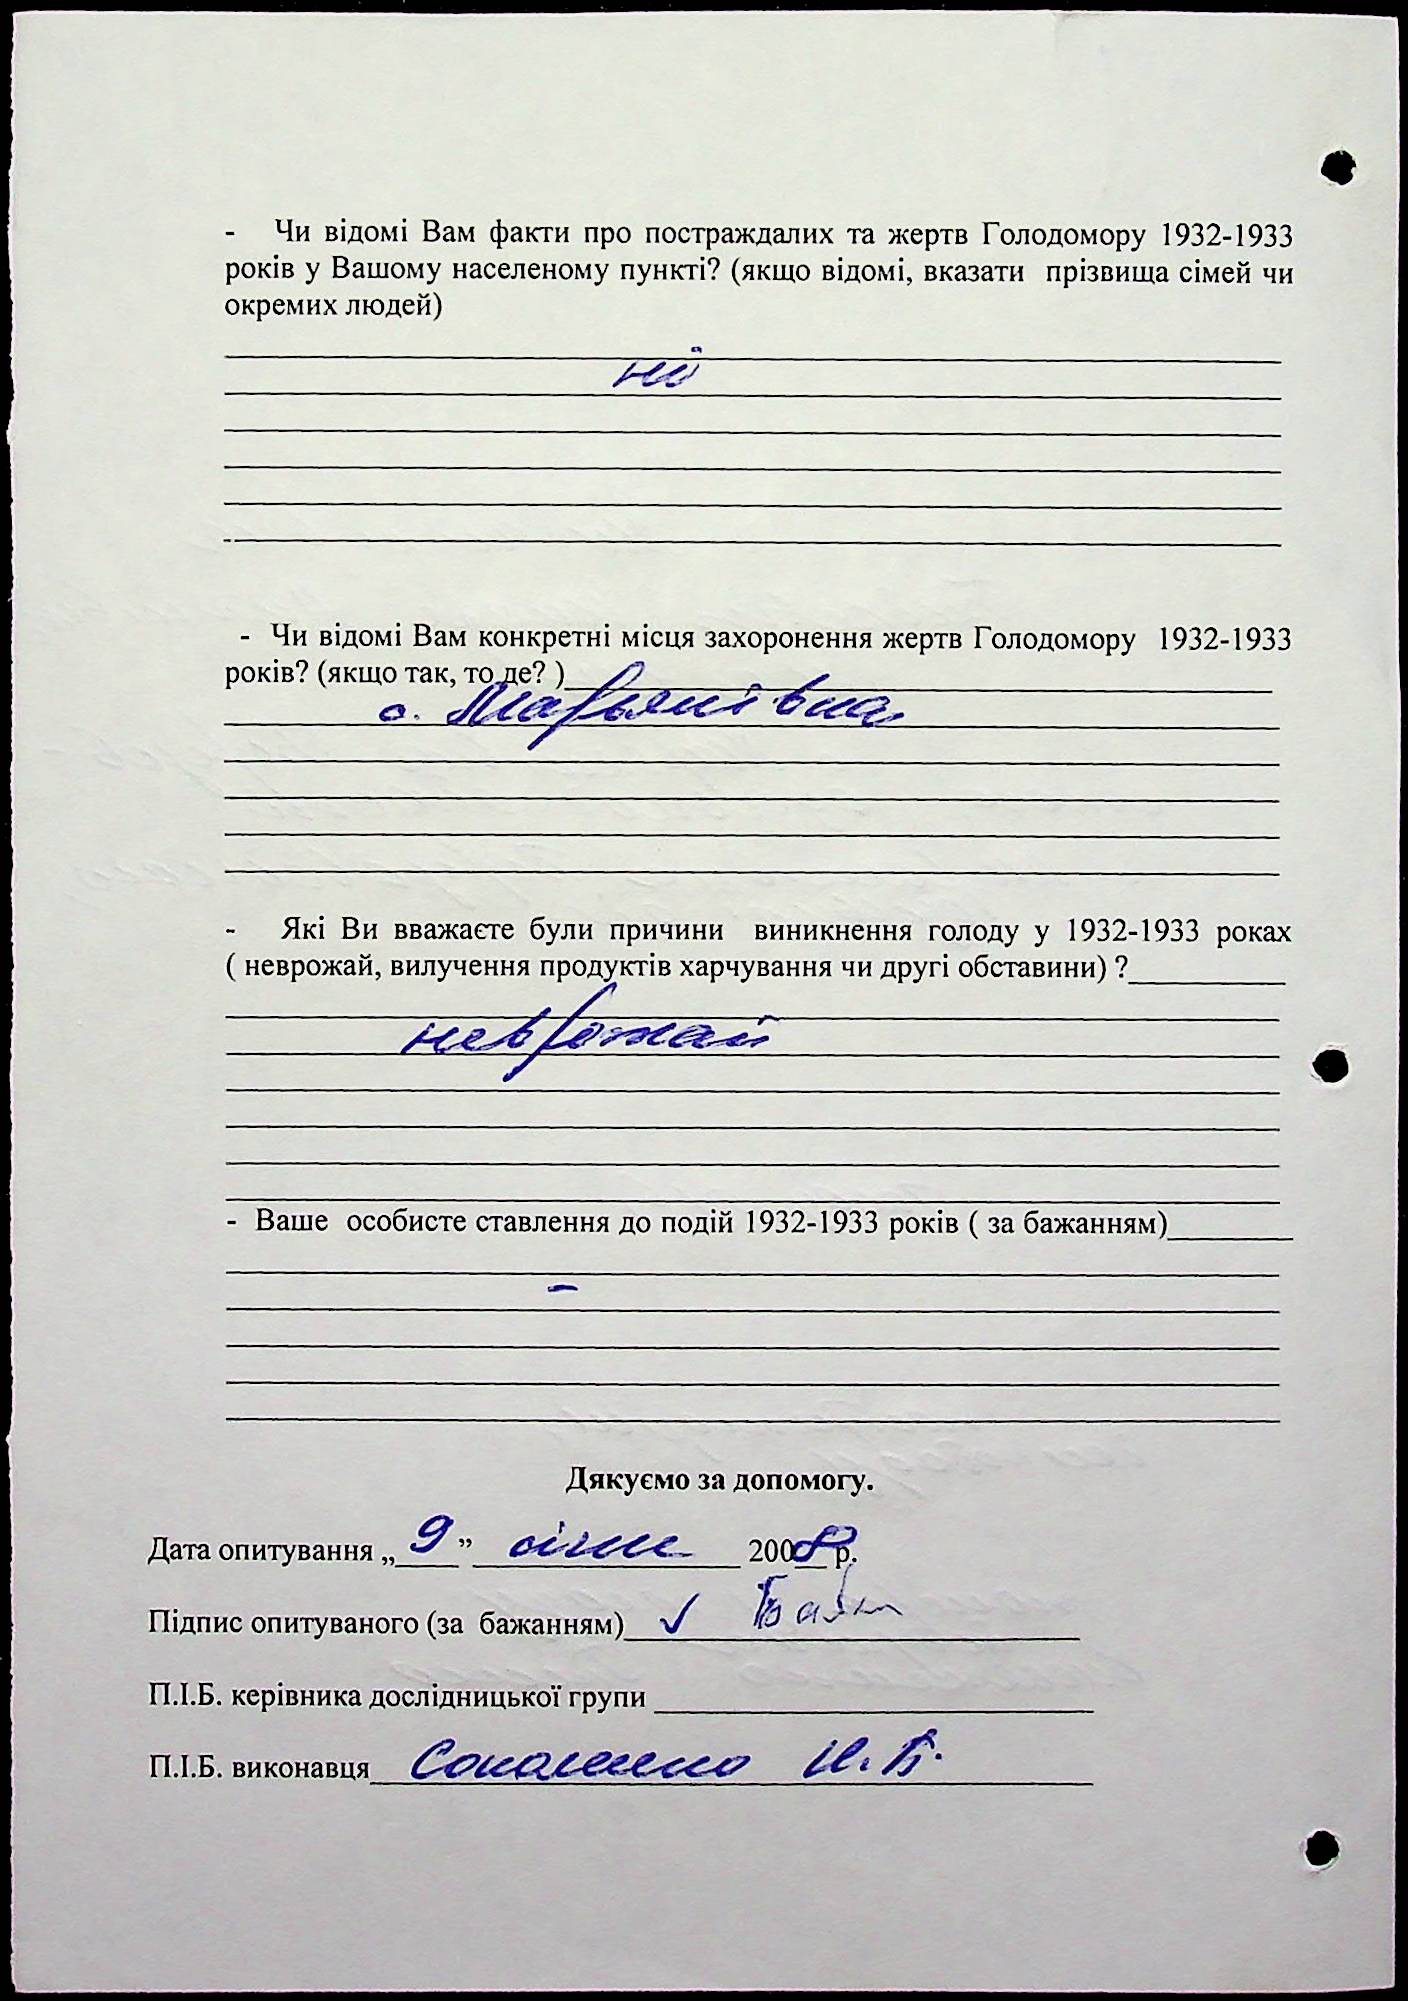 - Чи відомі Вам факти про постраждалих та жертв Голодомору 1932-1933
років у Вашому населеному пункті? (якщо відомі, вказати прізвища сімей чи
окремих людей)
ні
- Чи відомі Вам конкретні місця захоронення жертв Голодомору 1932-1933
років? (якщо так, то де? )
с. Мар'янівка
- Які Ви вважаєте були причини виникнення голоду у 1932-1933 роках
( неврожай, вилучення продуктів харчування чи другі обставини) ?
неврожай
- Ваше особисте ставлення до подій 1932-1933 років ( за бажанням)
–
Дякуємо за допомогу.
Дата опитування „ 9 ” січня 2008 р.
Підпис опитуваного (за бажанням) ✓
П.І.Б. керівника дослідницької групи
П.І.Б. виконавця Соколенко Н. В.